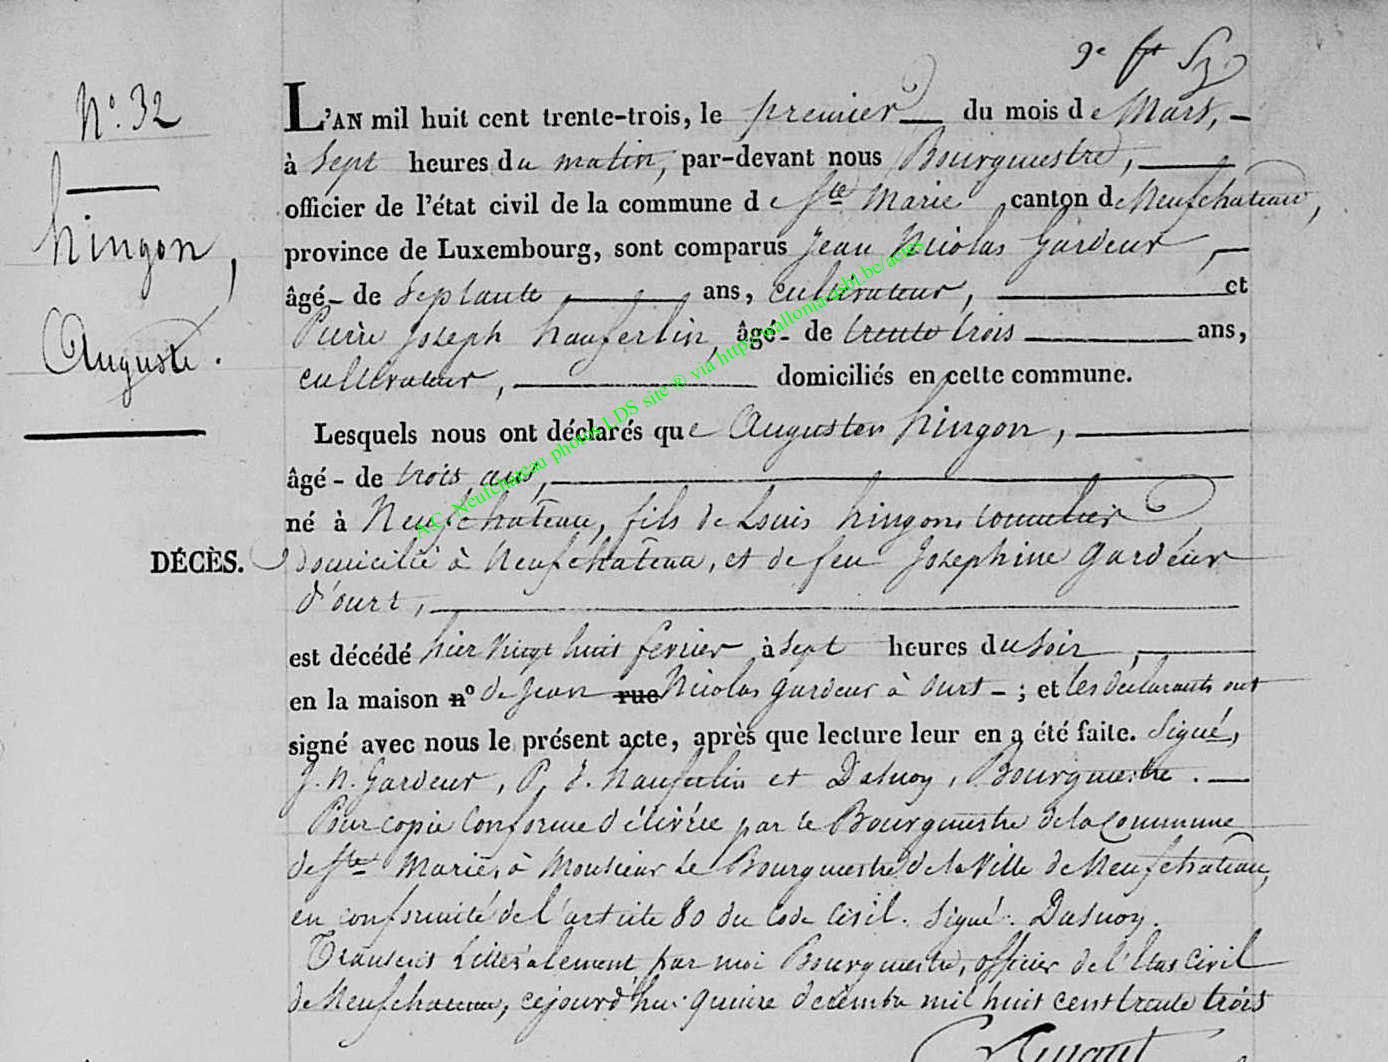 9e ft
N° 32
L'AN mil huit cent trente-trois, le premier du mois de Mars,
à Sept heures du matin, par-devant nous Bourgmestre,
officier de l'état civil de la commune de Ste Marie canton de Neufchateau,
hingon,
province de Luxembourg, sont comparus Jean Nicolas Gardeur,
âgé de Septante ans, cultivateur, et
Pierre Joseph hauferlin, âgé de trente trois ans,
Auguste.
cultivateur, domiciliés en cette commune.
Lesquels nous ont déclarés que Augusten hingon,
âgé de trois ans,
né à Neufchateau, fils de Louis hingon,
DÉCÈS.
domicilié à Neufchateau, et de feu Josephine Gardeur
d'ourt,
est décédé hier Vingt huit fevrier à Sept heures du Soir,
en la maison n° de Jean rue Nicolas Gardeur à ourt ; et les déclarants ont
signé avec nous le présent acte, après que lecture leur en a été faite. Signé,
J. N. Gardeur, P. J. hauferlin et Dasnoy, Bourgmestre.
Pour copie Conforme délivrée par le Bourgmestre de la Commune
de Ste Marie, à Monsieur le Bourgmestre de la Ville de Neufchateau,
en conformité de l'article 80 du Code Civil. Signé. Dasnoy.
Transcris Littéralement par moi Bourgmestre, officier de l'Etat Civil
de Neufchateau, cejourd'hui quinze decembre mil huit cent trente trois
A.C. Neufchateau photos LDS site ® via http://wallonia-asbl.be/actes